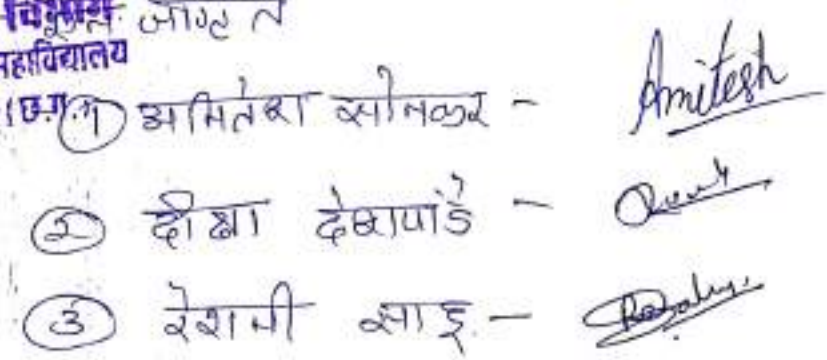 विभाग
महाविद्यालय
(छ.ग.)
① अमितेश सोनकर - Amitesh
② दीक्षा देशपांडे -
③ रेशमी साहू -